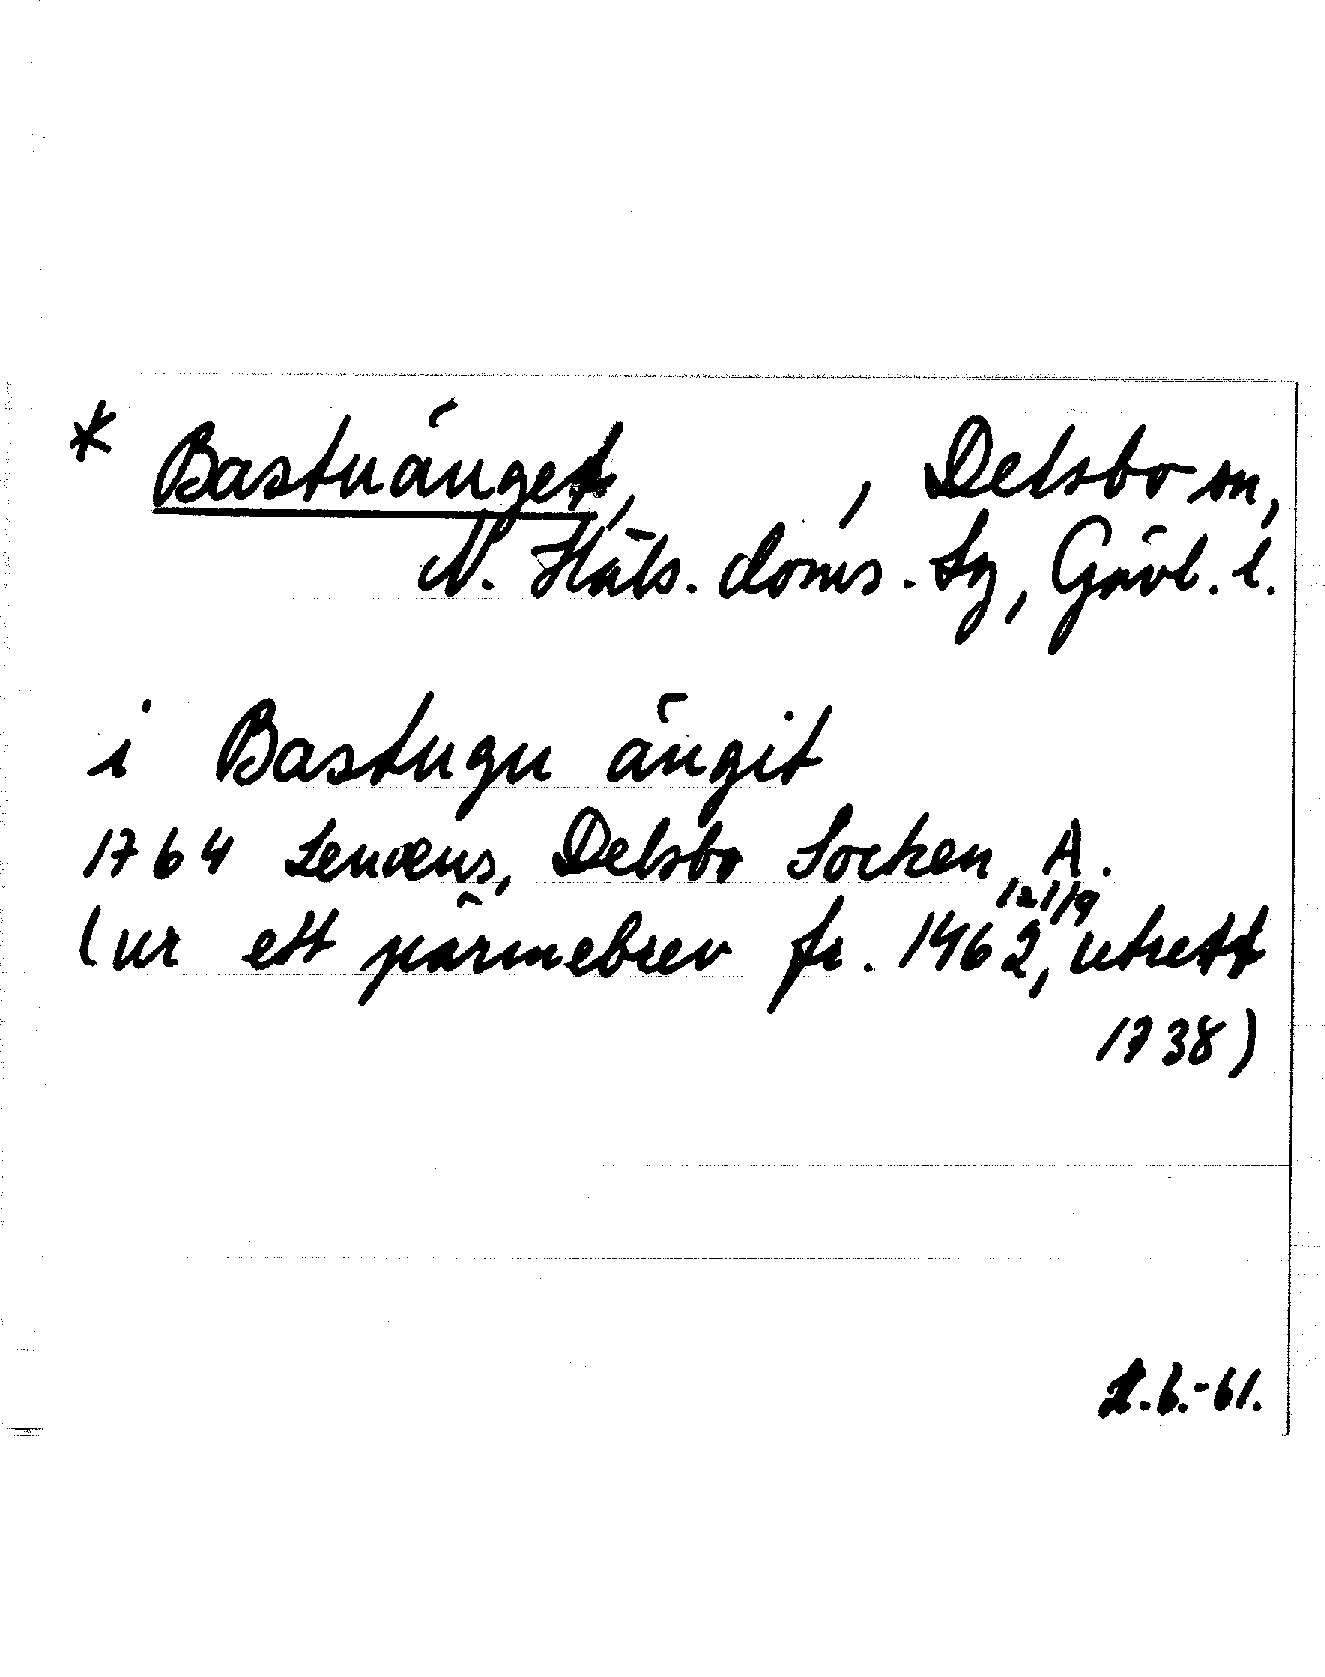 * Bastuänget, , Delsbo sn,
N. Häls. doms. Sg, Gävl. l.
i Bastugu ängit
1764 Lenæus, Delsbo Socken, A.
(ur ett pärmebrev fr. 1462, 21/9, utrett
1738)
.6.-61.